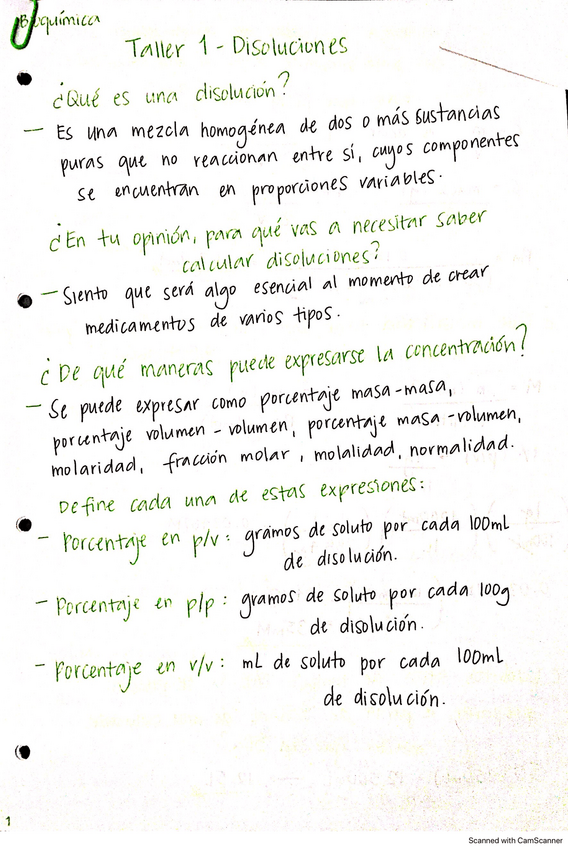 Bioquímica
Taller 1 - Disoluciones
¿Qué es una disolución?
— Es una mezcla homogénea de dos o más sustancias
puras que no reaccionan entre sí, cuyos componentes
se encuentran en proporciones variables.
¿En tu opinión, para qué vas a necesitar saber
calcular disoluciones?
— Siento que será algo esencial al momento de crear
medicamentos de varios tipos.
¿De qué maneras puede expresarse la concentración?
— Se puede expresar como porcentaje masa-masa,
porcentaje volumen - volumen, porcentaje masa - volumen,
molaridad, fracción molar, molalidad, normalidad.
Define cada una de estas expresiones:
- Porcentaje en p/v: gramos de soluto por cada 100mL
de disolución.
- Porcentaje en p/p: gramos de soluto por cada 100g
de disolución.
- Porcentaje en v/v: mL de soluto por cada 100mL
de disolución.
1
Scanned with CamScanner